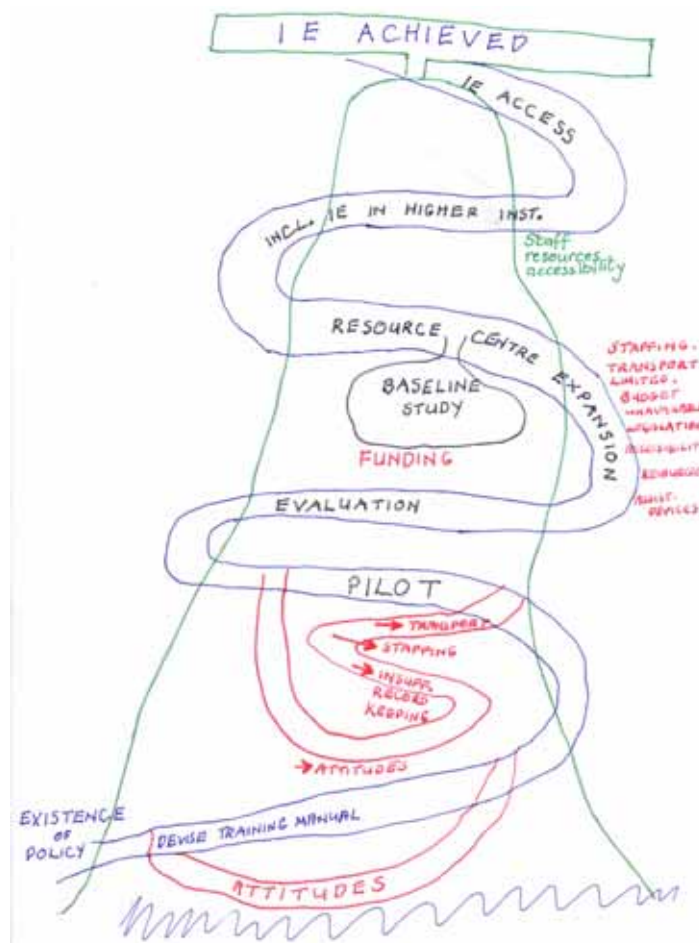 IE ACHIEVED
IE ACCESS
INCL. IE IN HIGHER INST.
Staff
resources
accessibility
RESOURCE CENTRE EXPANSION
STAFFING.
TRANSPORT
LIMITED.
BUDGET
BASELINE
STUDY
FUNDING
RESOURCES
DEVICES
EVALUATION
PILOT
→ TRANSPORT
→ STAFFING
→ INSUFF.
RECORD
KEEPING
→ ATTITUDES
EXISTENCE
OF
POLICY
DEVISE TRAINING MANUAL
ATTITUDES